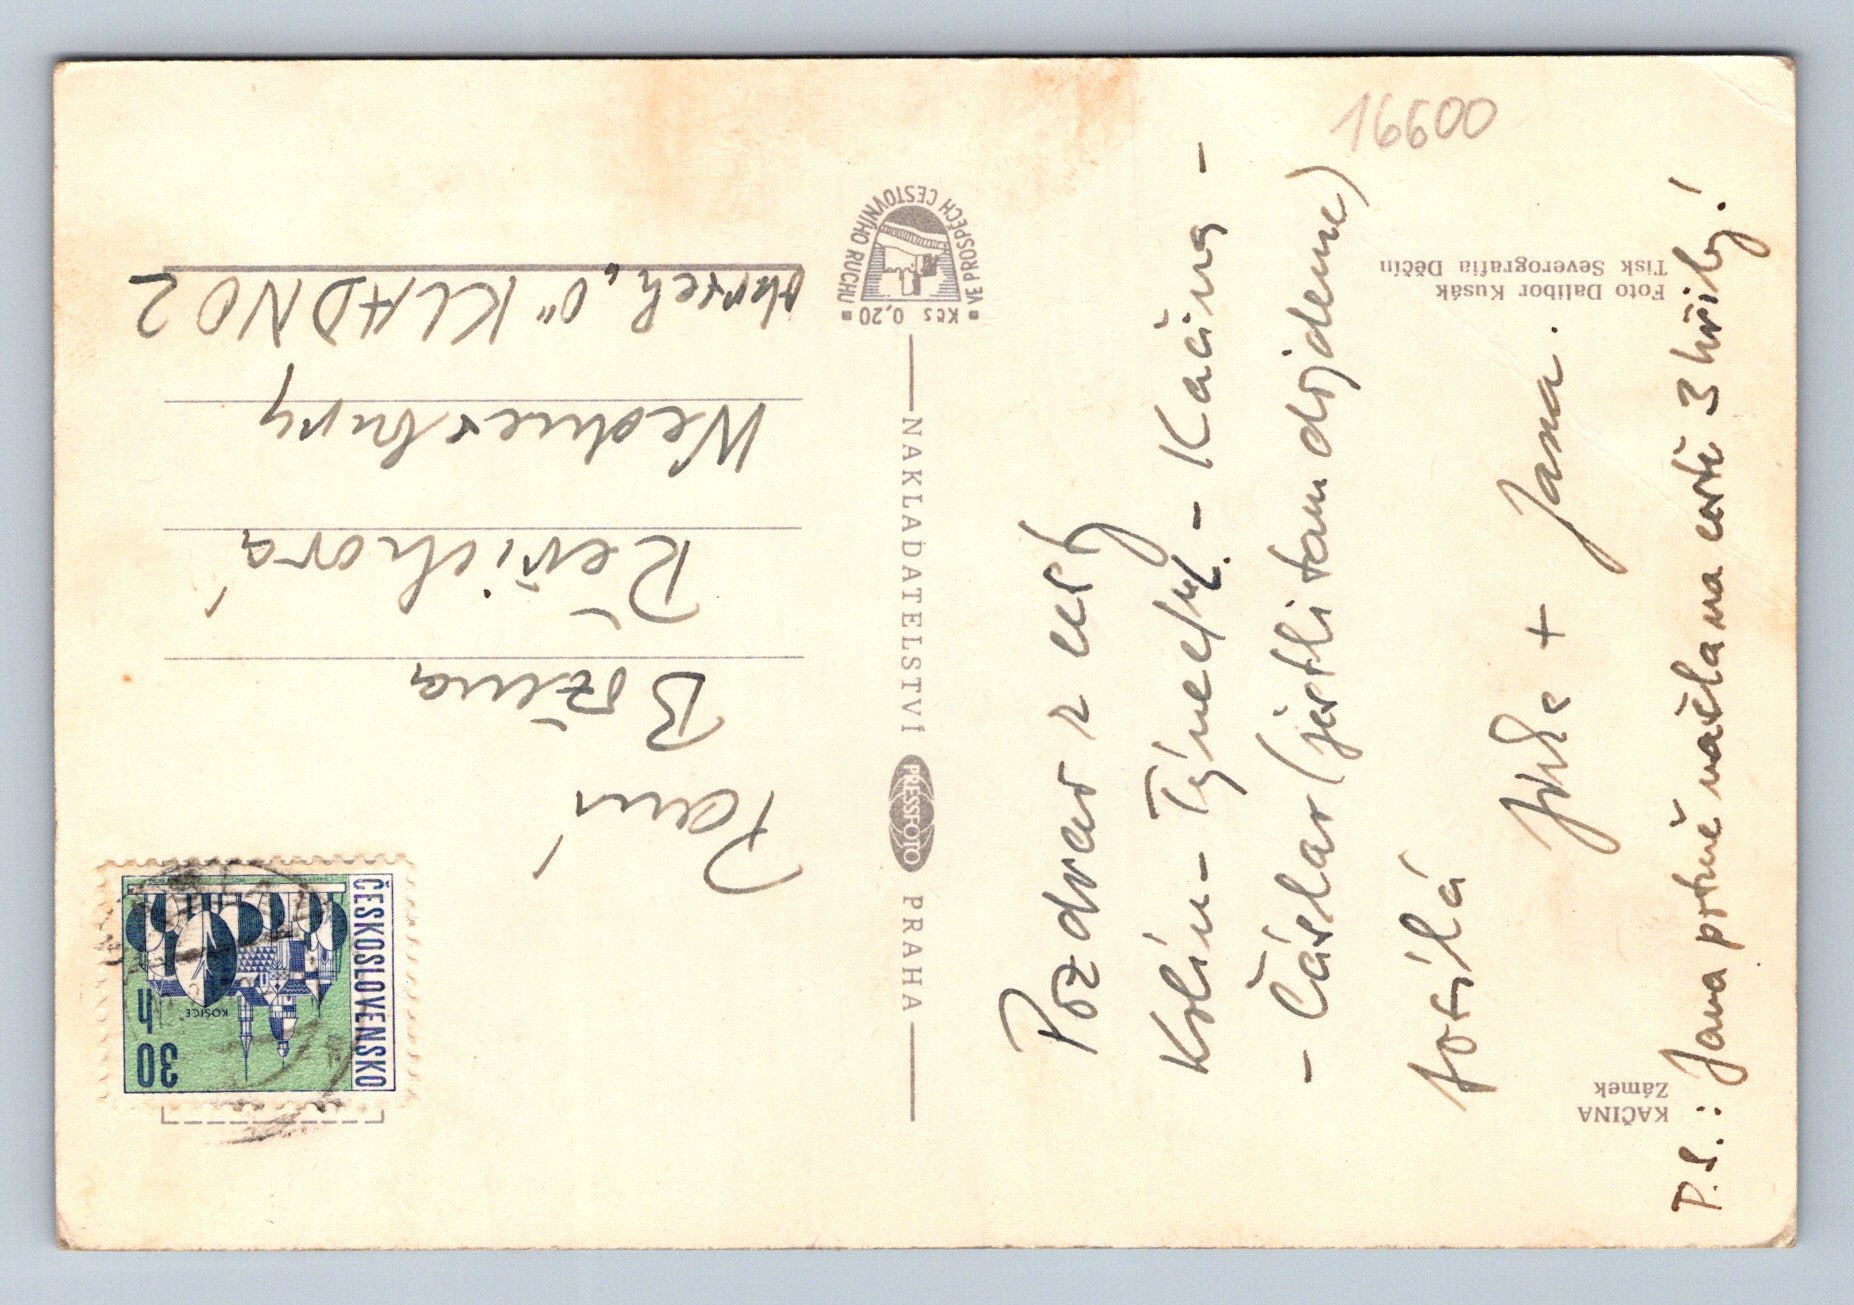 KAČINA
Zámek
Foto Dalibor Kusák
Tisk Severografia Děčín
NAKLADATELSTVÍ PRESSFOTO PRAHA
Kčs 0,20
VE PROSPĚCH CESTOVNÍHO RUCHU
ČESKOSLOVENSKO
30 h
KOŠICE
Paní
Božena
Řeřichová
KLADNO 2
Pozdrav z cesty
Kolín - Týnec/
- Kačina -
- Čáslav (jestli tam dojdeme)
Jana.
P.S.: Jana potmě našla na cestě 3 hřiby!
16600